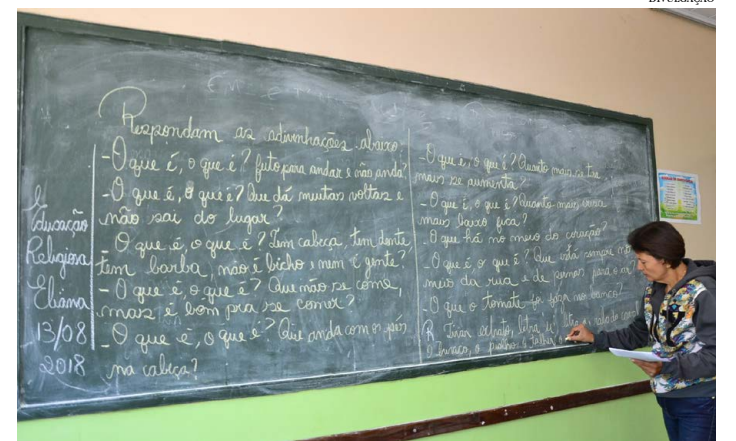 DIVULGAÇÃO
Respondam as adivinhações abaixo.
- O que é, o que é? feito para andar e não anda?
- O que é, o que é? Que dá muitas voltas e
não sai do lugar?
- O que é, o que é? Tem cabeça, tem dente,
tem barba, não é bicho e nem é gente?
- O que é, o que é? Que não se come,
mas é bom pra se comer?
- O que é, o que é? Que anda com os pés
na cabeça?
Educação
Religiosa
Eliana
13/08
2018
- O que é, o que é? Quanto mais se tira
mais se aumenta?
- O que é, o que é? Quanto mais
mais baixo fica?
- O que há no meio do coração?
- O que é, o que é? Que está sempre no
meio da rua e de pernas para o ar?
- O que o tomate foi fazer no banco?
R Tirar extrato, letra u,
O buraco, o piolho, o talher